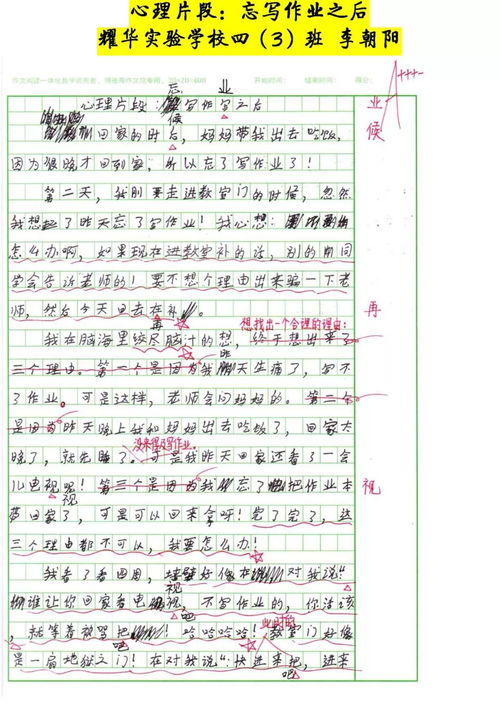 心理片段：忘写作业之后
耀华实验学校四（3）班 李朝阳
A+++-
忘 业
心理片段：写作写之后
业
候
候
回家的时后，妈妈带我出去吃饭，
因为很晚才回到家，所以忘了写作业了！
第二天，我刚要走进教室门的时候，忽然
我想起了昨天忘了写作业！我心想：
怎么办啊，如果现在进教室补的话，别的同同
学会告诉老师的！要不想个理由出来骗一下老
师，然后今天回去在补
再
再
想找出一个合理的理由：
我在脑海里绞尽脑汁的想，终于想出来了
三个理由。第一个是因为我昨天生病了，写不
了作业。可是这样，老师会问妈妈的。第二个
是因为昨天晚上我和妈妈出去吃饭了，回家太
没来得及写作业。
晚了，就先睡了。可是我昨天回家还看了一会
儿电视呢！第三个是因为我忘了把作业本
视
视
带回家了，可是可以回来拿呀！完了完了，这
三个理由都不可以，我要怎么办！
我看了看四周，墙壁好像在对我说“
视
谁让你回家看电视，不写作业的，你活该
吧
此时的
，就等着被骂把！哈哈哈哈！教室门好像
吧
是一扇地狱之门！在对我说“快进来把，进来
吧